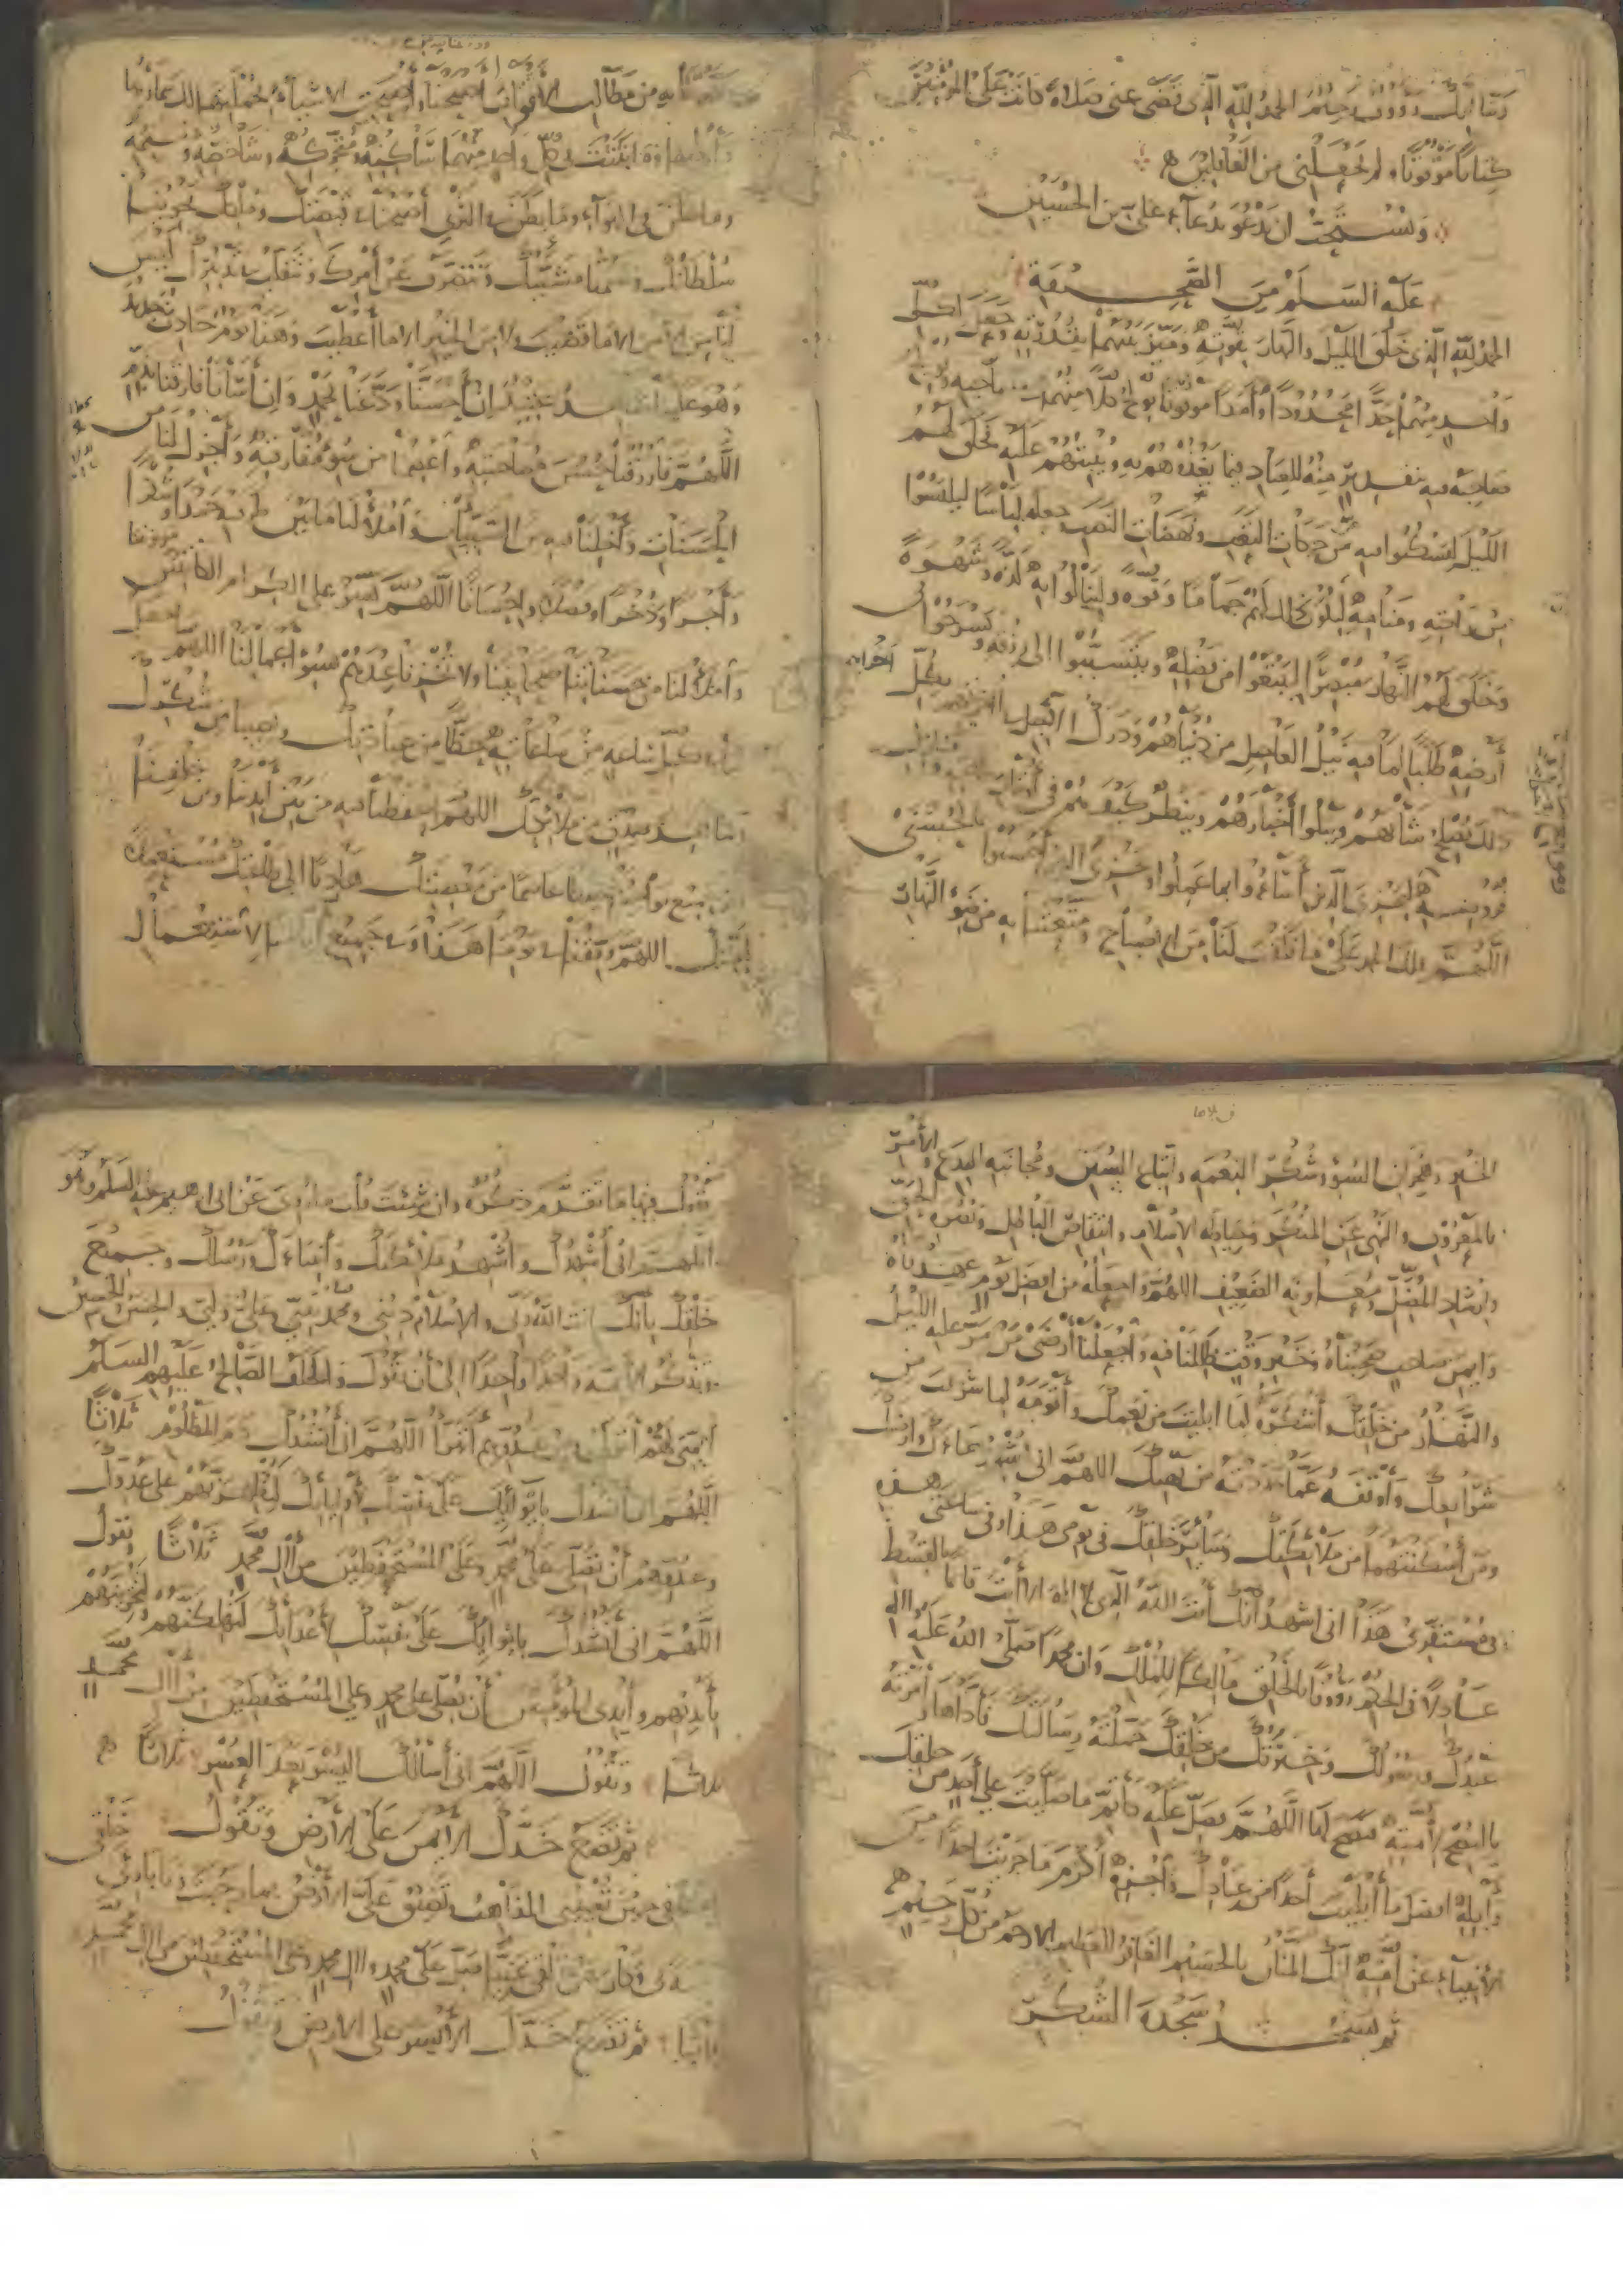 ربنا انك رؤوف رحيم الحمد لله الذى قضى عنى صلاة كانت على المؤمنين
كتابا موقوتا ولم يجعلنى من الغافلين
ويستحب ان يدعو بدعاء على بن الحسين
عليه السلم من الصحيفة
الحمد لله الذى خلق الليل والنهار بقوته وميز بينهما بقدرته وجعل لكل
واحد منهما حدا محدودا وأمدا موقوتا يولج كلا منهما فى صاحبه ويولج
صاحبه فيه بتقدير منه للعباد فيما يغذوهم به وينشئهم عليه فخلق لهم
الليل ليسكنوا فيه من حركات التعب ونهضات النصب وجعله لباسا ليلبسوا
من راحته ومنامه فيكون ذلك لهم جماما وقوة ولينالوا به لذة وشهوة
وخلق لهم النهار مبصرا ليبتغوا من فضله وليتسببوا الى رزقه ويسرحوا فى
أرضه طلبا لما فيه نيل العاجل من دنياهم ودرك الآجل فى أخراهم بكل
ذلك يصلح شأنهم ويبلوا أخبارهم وينظر كيف هم فى أوقات طاعته ومنازل
فروضه ليجزى الذين أساءوا بما عملوا ويجزى الذين أحسنوا بالحسنى
اللهم فلك الحمد على ما فلقت لنا من الإصباح ومتعتنا به من ضوء النهار
فيه من مطالب الأقوات أصبحنا وأصبحت الأشياء بجملتها لك سماؤها
وأرضها وما بثثت فى كل واحد منهما ساكنه ومتحركه وشاخصه ومقيمه
وما علن فى الهواء وما بطن فى الثرى أصبحنا فى قبضتك وملكك يحوينا
سلطانك وتضمنا مشيتك ونتصرف عن أمرك ونتقلب فى تدبيرك ليس
لنا من الأمر الا ما قضيت ولا من الخير الا ما أعطيت وهذا يوم حادث جديد
وهو علينا شاهد عتيد إن أحسنا ودعنا بحمد وإن أسأنا فارقنا بذم
اللهم فارزقنا حسن مصاحبته واعصمنا من سوء مفارقته وأجزل لنا من
الحسنات وأخلنا فيه من السيئات واملأ لنا ما بين طرفيه حمدا وشكرا
وأجرا وذخرا وفضلا وإحسانا اللهم يسر على الكرام الكاتبين مؤونتنا
واملأ لنا من حسناتنا صحائفنا ولا تخزنا عندهم بسوء أعمالنا اللهم اجعل
لنا فى كل ساعة من ساعاته حظا من عبادتك ونصيبا من شكرك
وشاهد صدق من ملائكتك اللهم احفظنا فيه من بين أيدينا ومن خلفنا
ومن جميع نواحينا حفظا عاصما من معصيتك هاديا إلى طاعتك مستعملا
لمحبتك اللهم وفقنا فى يومنا هذا وفى جميع أيامنا لاستعمال
الخير وهجران السوء وشكر النعمة واتباع السنن ومجانبة البدع والأمر
بالمعروف والنهى عن المنكر وحياطة الإسلام وانتقاص الباطل ونصرة الحق
وإرشاد المضل ومعاونة الضعيف اللهم واجعله من أفضل يوم عهدناه
وأيمن صاحب صحبناه وخير وقت ظللنا فيه واجعلنا أرضى من مر عليه الليل
والنهار من خلقك وأشكره لما أبليت من نعمك وأقومه لما شرعت من
شرايعك وأوقفه عما حذرت من نهيك اللهم انى أشهد سماءك وأرضك
ومن أسكنتهما من ملائكتك وسائر خلقك فى يومى هذا وفى ساعتى هذه
فى مستقرى هذا انى اشهد أنك أنت الله الذى لا اله الا أنت قائما بالقسط
عادلا فى الحكم رؤوفا بالخلق مالكا للملك وان محمدا صلى الله عليه واله
عبدك ورسولك وخيرتك من خلقك حملته رسالتك فأداها وأمرته
بالنصح لأمته فنصح لها اللهم فصل عليه كأتم ما صليت على أحد من خلقك
وأنله أفضل ما أنلت أحدا من عبادك واجزه أكرم ما جزيت أحدا من
الأنبياء عن أمته إنك المنان بالجسيم الغافر للعظيم الأرحم من كل رحيم
ثم تسجد سجدة الشكر
وتقول فيها ما تقدم ذكره وان شئت قلت ما روى عن ابى ابرهيم عليه السلم وهو
اللهم انى أشهدك وأشهد ملائكتك وأنبياءك ورسلك وجميع
خلقك بأنك أنت الله ربى والإسلام دينى ومحمد نبيى وعلى وليى والحسن والحسين
وتذكر الأئمة واحدا واحدا إلى أن تقول والخلف الصالح عليهم السلم
أئمتى بهم أتولى ومن عدوهم أتبرأ اللهم انى أنشدك دم المظلوم ثلاثا
اللهم انى أنشدك بإيوائك على نفسك لأوليائك لتظفرنهم على عدوك
وعدوهم أن تصلى على محمد وعلى المستحفظين من آل محمد ثلاثا وتقول
اللهم انى أنشدك بإيوائك على نفسك لأعدائك لتهلكنهم ولتخزينهم
بأيديهم وأيدى المؤمنين أن تصلى على محمد وعلى المستحفظين من آل محمد
ثلاثا وتقول اللهم انى أسألك اليسر بعد العسر ثلاثا
ثم تضع خدك الأيمن على الأرض وتقول
يا كهفى حين تعيينى المذاهب وتضيق على الأرض بما رحبت ويا بارئ خلقى
رحمة بى وكان عن خلقى غنيا صل على محمد وال محمد وعلى المستحفظين من آل محمد
ثلاثا ثم تضع خدك الأيسر على الأرض وتقول